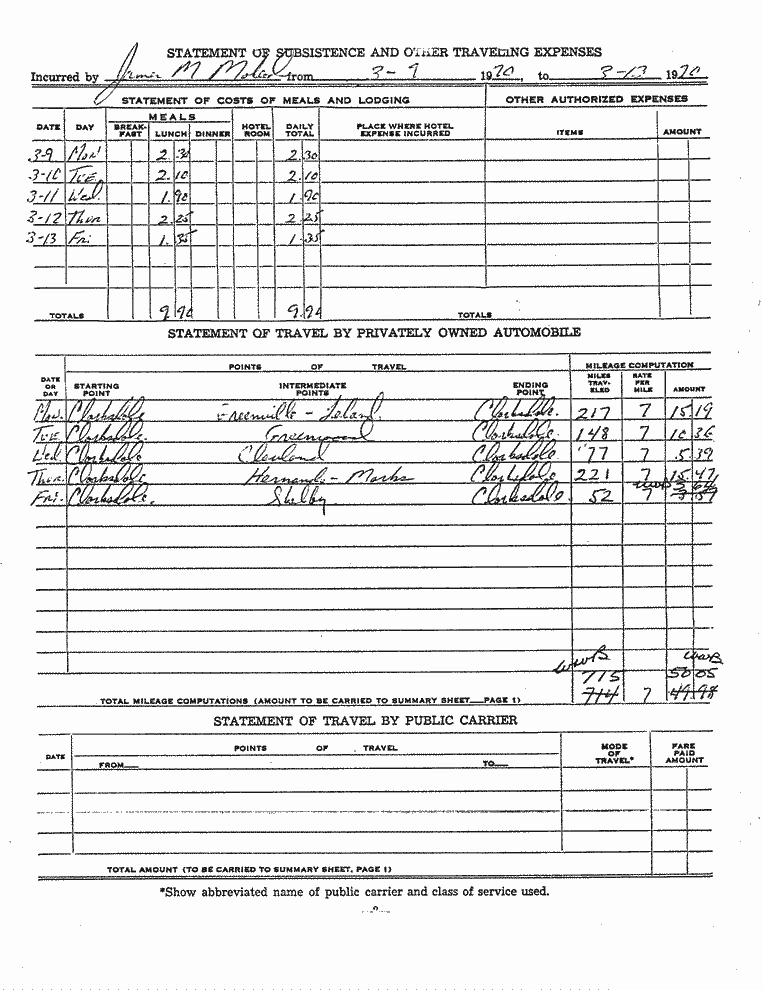 STATEMENT OF SUBSISTENCE AND OTHER TRAVELING EXPENSES
Incurred by M from 3-9 1970, to 3-13 1970
STATEMENT OF COSTS OF MEALS AND LODGING OTHER AUTHORIZED EXPENSES
MEALS
DATE DAY BREAK-FAST LUNCH DINNER HOTEL ROOM DAILY TOTAL PLACE WHERE HOTEL EXPENSE INCURRED ITEMS AMOUNT
3-9 Mon 2.30 2.30
3-10 Tue. 2.10 2.10
3-11 Wed. 1.90 1.90
3-12 Thur 2.25 2.25
3-13 Fri 1.35 1.35
TOTALS 9.94 9.94 TOTALS
STATEMENT OF TRAVEL BY PRIVATELY OWNED AUTOMOBILE
POINTS OF TRAVEL MILEAGE COMPUTATION
DATE OR DAY STARTING POINT INTERMEDIATE POINTS ENDING POINT MILES TRAV-ELED RATE PER MILE AMOUNT
Mon. Clarksdale Greenville - Leland Clarksdale. 217 7 15.19
Tue Clarksdale Greenwood Clarksdale. 148 7 10 36
Wed Clarksdale Cleveland Clarksdale 77 7 5.39
Thur. Clarksdale Hernando - Marks Clarksdale 221 7 15.47
WWB 3 64
Fri. Clarksdale. Shelby Clarksdale 52 7
WWB WWB
715 50 05
TOTAL MILEAGE COMPUTATIONS (AMOUNT TO BE CARRIED TO SUMMARY SHEET—PAGE 1) 714 7 49.98
STATEMENT OF TRAVEL BY PUBLIC CARRIER
DATE POINTS OF TRAVEL MODE OF TRAVEL* FARE PAID AMOUNT
FROM— TO—
TOTAL AMOUNT (TO BE CARRIED TO SUMMARY SHEET, PAGE 1)
*Show abbreviated name of public carrier and class of service used.